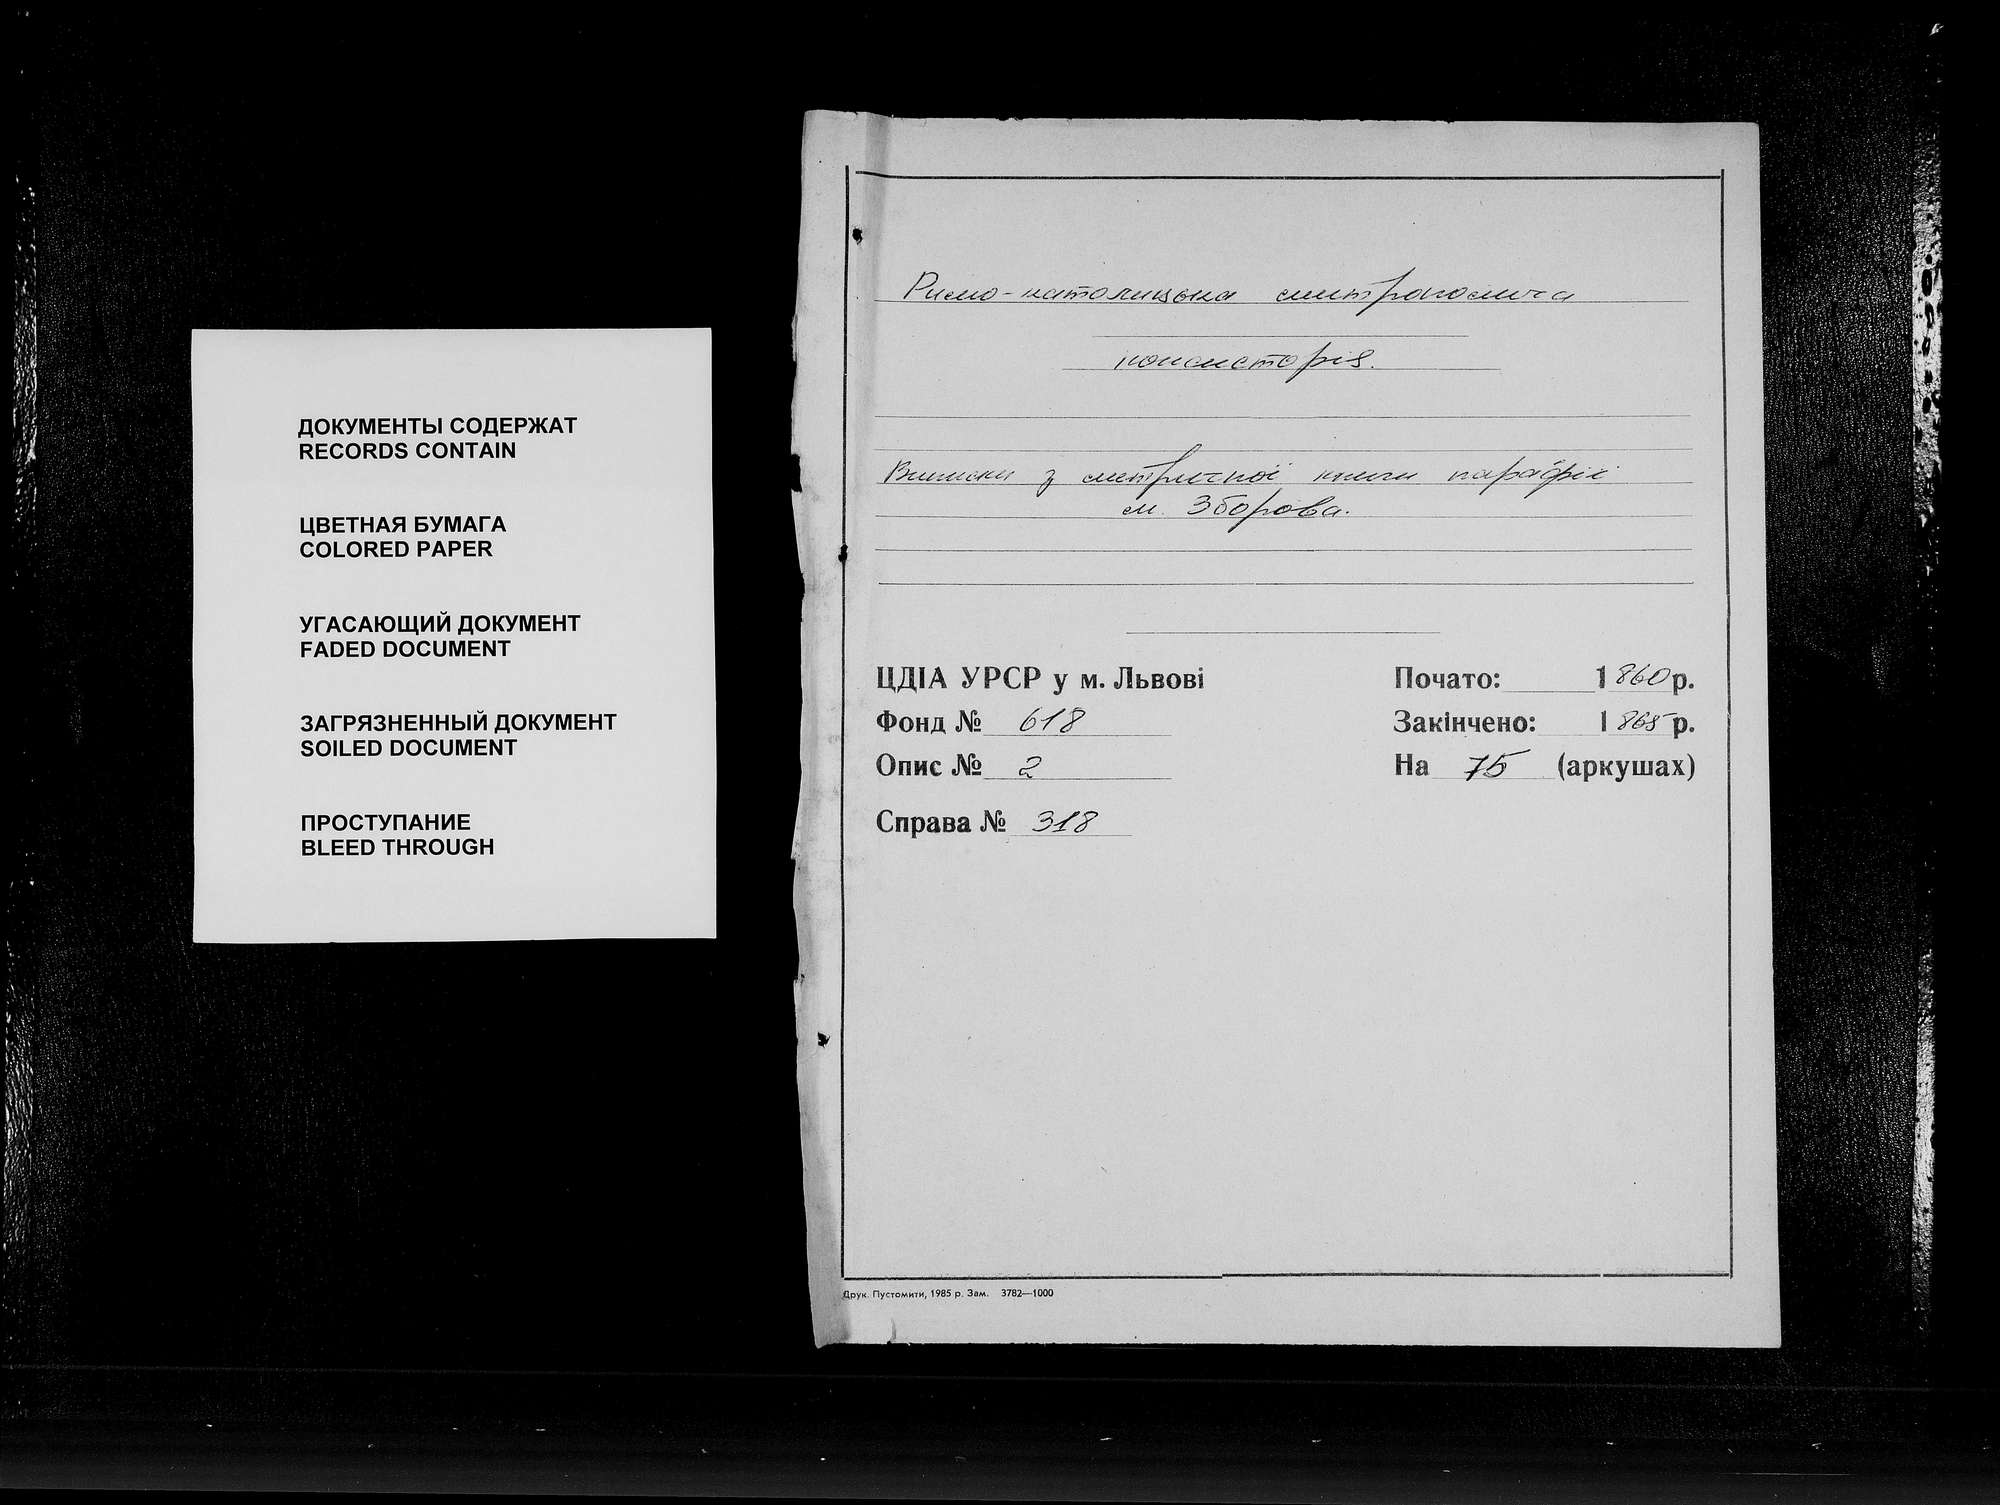 ДОКУМЕНТЫ СОДЕРЖАТ
RECORDS CONTAIN
ЦВЕТНАЯ БУМАГА
COLORED PAPER
УГАСАЮЩИЙ ДОКУМЕНТ
FADED DOCUMENT
ЗАГРЯЗНЕННЫЙ ДОКУМЕНТ
SOILED DOCUMENT
ПРОСТУПАНИЕ
BLEED THROUGH
Римо-католицька митрополича
консисторія.
Виписки з метричної книги парафії
м. Зборова.
ЦДІА УРСР у м. Львові
Фонд № 618
Опис № 2
Справа № 318
Почато: 1860 р.
Закінчено: 1865 р.
На 75 (аркушах)
Друк. Пустомити, 1985 р. Зам. 3782—1000